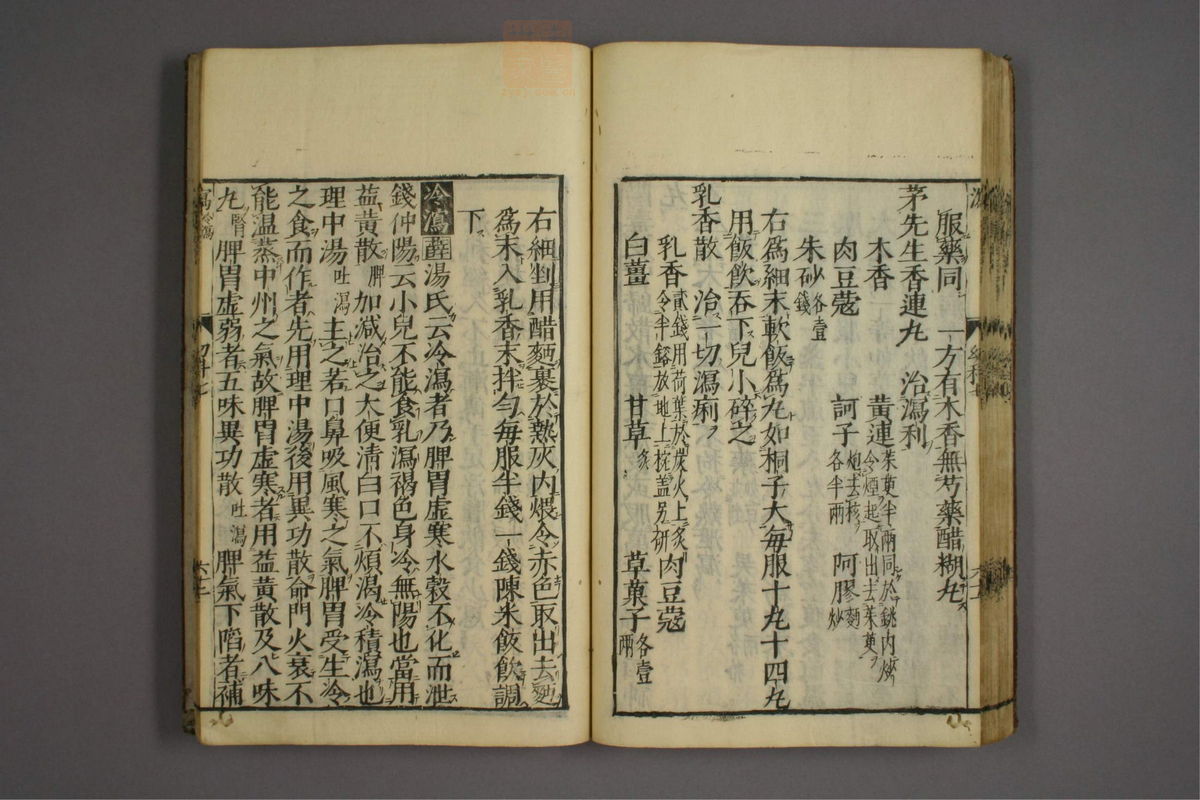 服藥同 一方有木香無芍藥醋糊丸
茅先生香連丸 治瀉利
木香 黃連茱萸半兩同於銚內炒令煙起取出去茱萸
肉豆蔻 訶子炮去核各半兩 阿膠麵炒
朱砂各壹錢
右為細末軟飯為丸如桐子大每服十丸十四丸
用飯飲吞下兒小碎之
乳香散 治一切瀉痢
乳香貳錢用荷葉於炭火上炙令半鎔放地上椀蓋另研 肉豆蔻
白薑 甘草炙 草菓子各壹兩
右細剉用醋麵裹於熱灰內煨令赤色取出去麵
為末入乳香末拌勻每服半錢一錢陳米飯飲調
下
冷瀉 薛 湯氏云冷瀉者乃脾胃虛寒水穀不化而泄
錢仲陽云小兒不能食乳瀉褐色身冷無陽也當用
益黃散脾加減治之大便清白口不煩渴冷積瀉也
理中湯吐瀉主之若口鼻吸風寒之氣脾胃受生冷
之食而作者先用理中湯後用異功散命門火衰不
能溫蒸中州之氣故脾胃虛寒者用益黃散及八味
丸腎脾胃虛弱者五味異功散吐瀉脾氣下陷者補
瀉冷瀉
幼科七
六十二